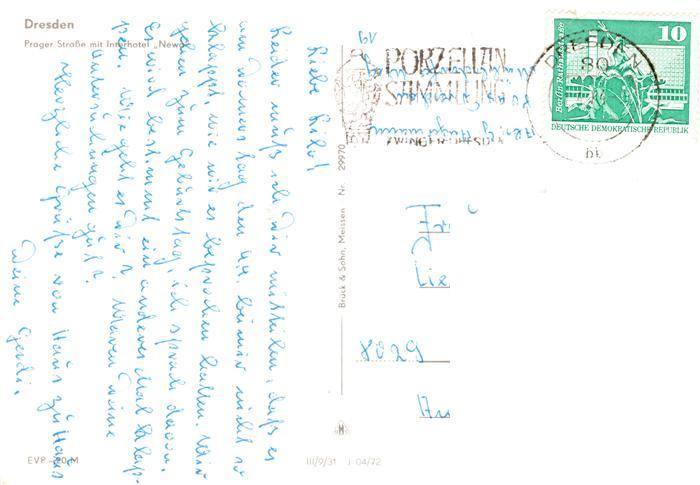 Dresden
Prager Straße mit Interhotel „Newa"
Liebe Lilo!
Leider muß ich Dir mitteilen, daß es
am Donnerstag den 4.4. bei mir nicht so
klappt, wie wir es besprochen hatten. Wir
gehen zum Geburtstag, ich sprach davon.
Es wird bestimmt ein anderes Mal klap-
pen. Wie geht es Dir? Waren Deine
Untersuchungen gut?
Herzliche Grüße von Haus zu Haus
Deine Gerdi.
EVP -20 M
Brück & Sohn, Meissen Nr. 29970
III/9/31 J 04/72
PORZELLAN
SAMMLUNG
ZWINGER
DRESDEN
80
Berlin, Rathausstraße
10
DEUTSCHE DEMOKRATISCHE REPUBLIK
Fr
Lie
8029